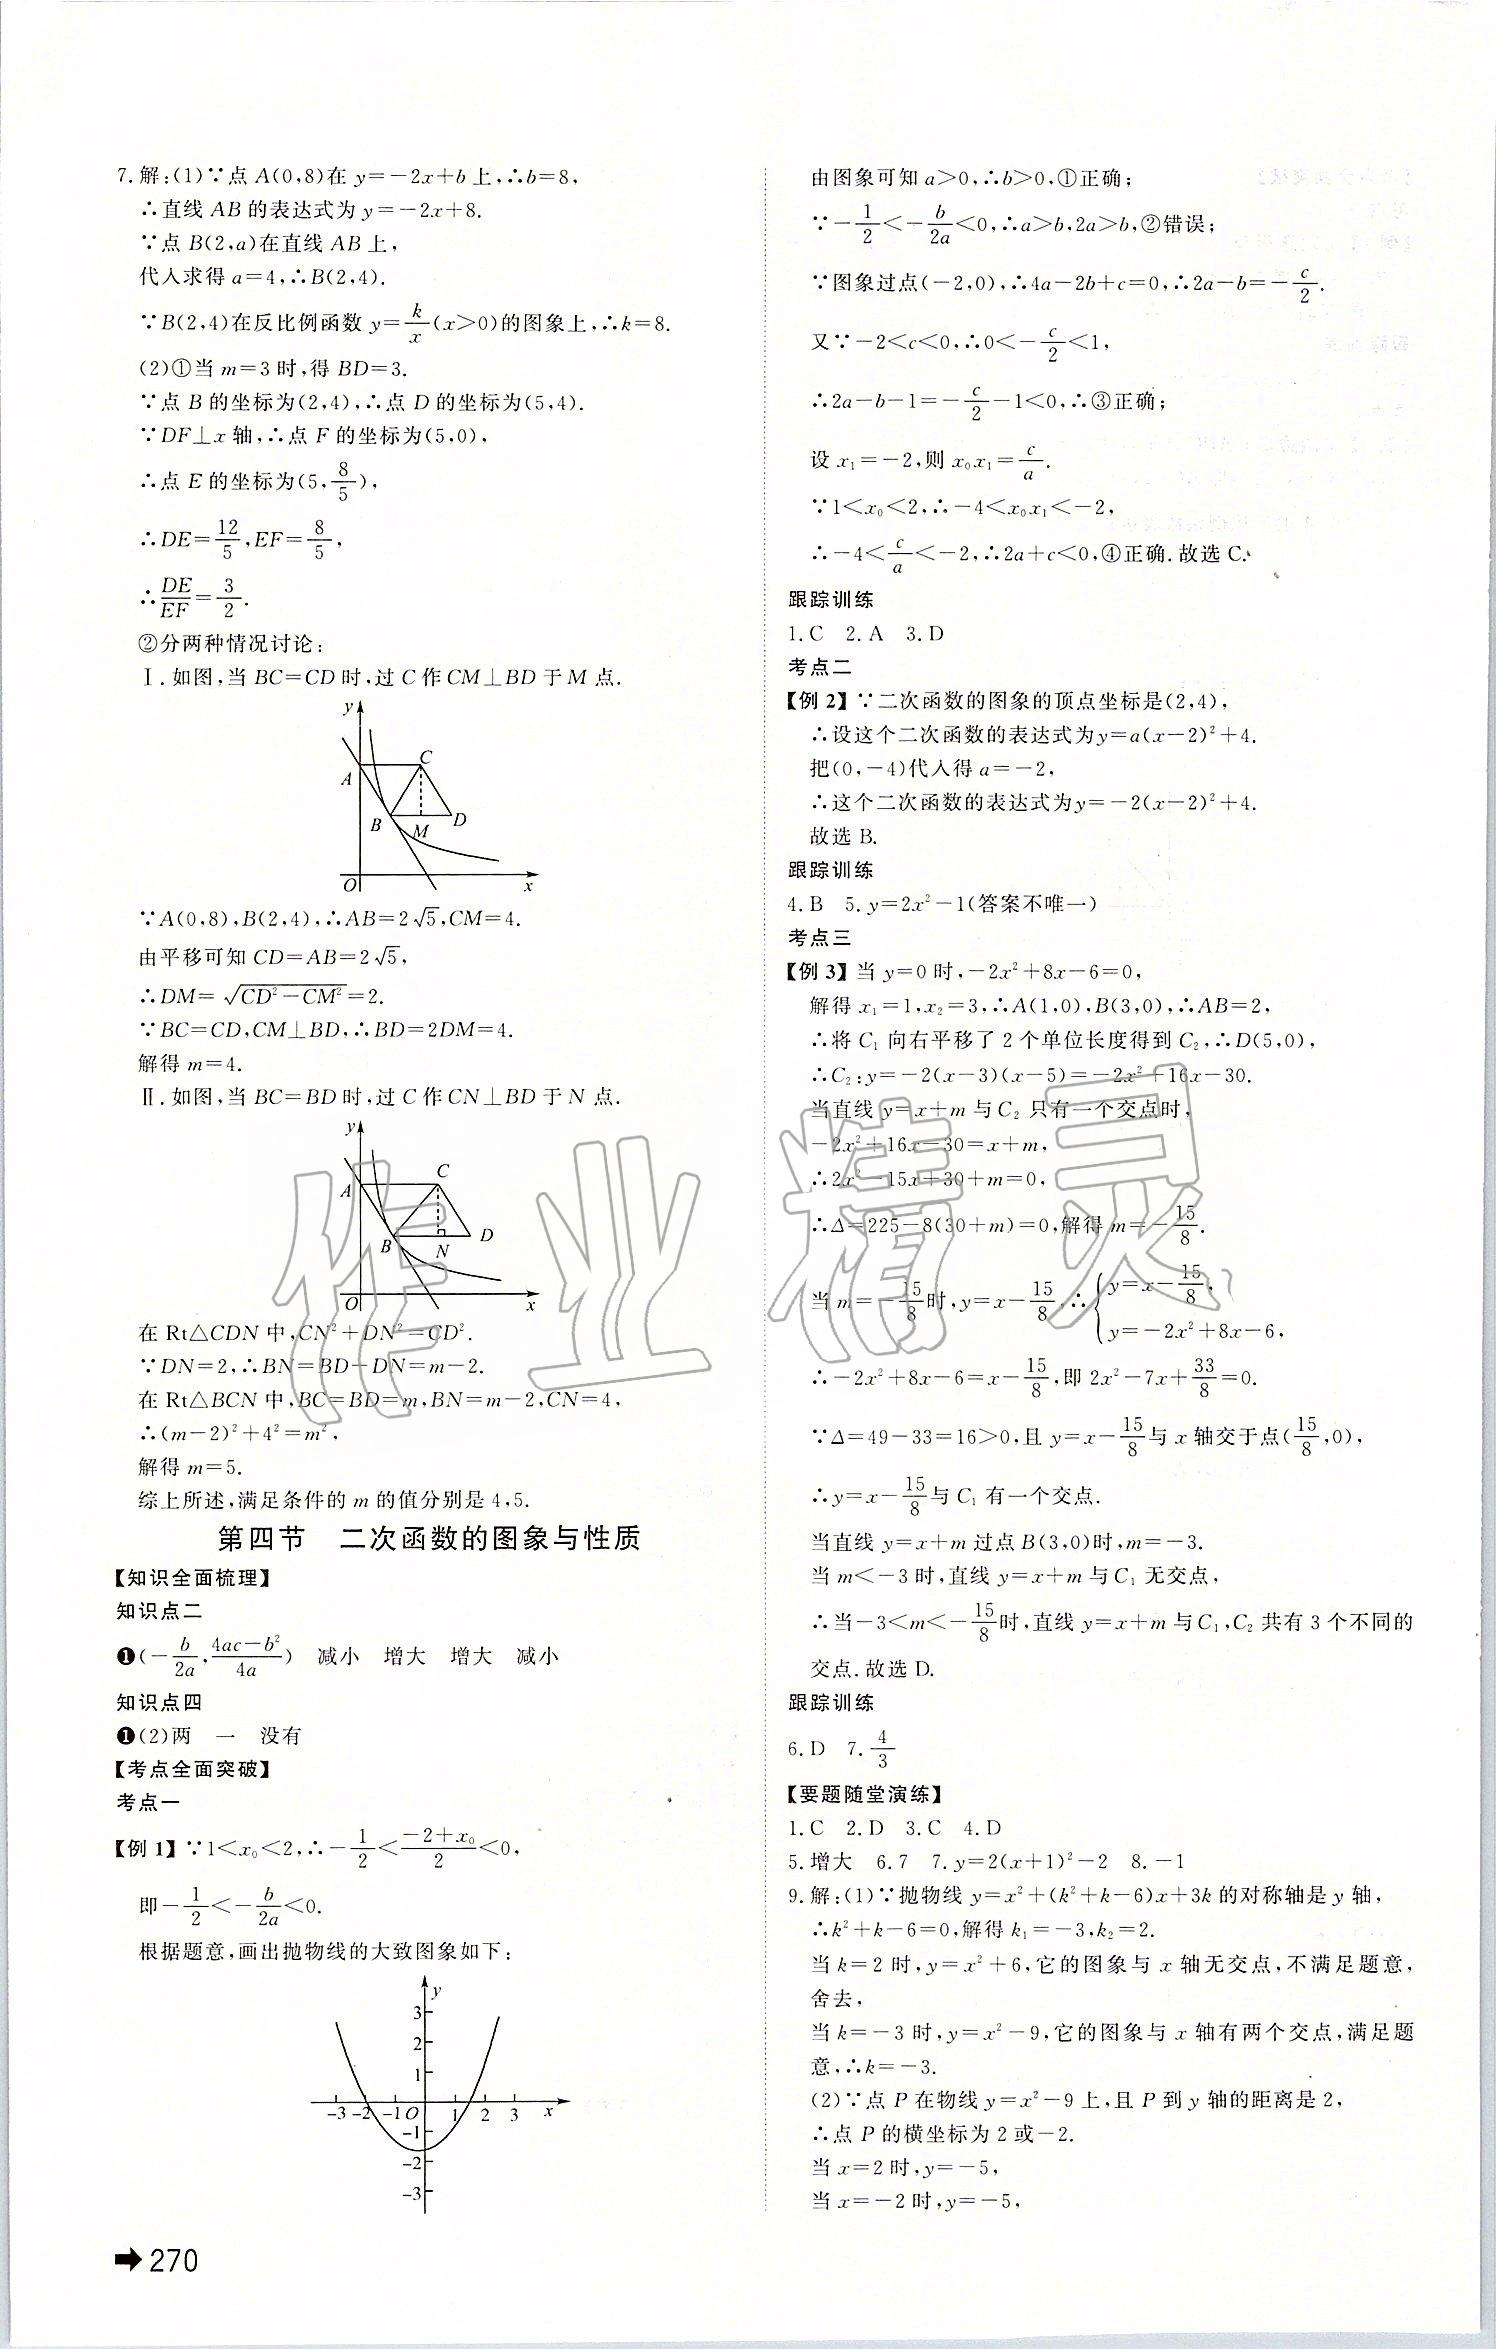 7.解:(1)∵点A(0,8)在y=-2x+b上,∴b=8,
∴直线AB的表达式为y=-2x+8.
∵点B(2,a)在直线AB上,
代入求得a=4,∴B(2,4).
∵B(2,4)在反比例函数y=k/x(x>0)的图象上,∴k=8.
(2)①当m=3时,得BD=3.
∵点B的坐标为(2,4),∴点D的坐标为(5,4).
∵DF⊥x轴,∴点F的坐标为(5,0),
∴点E的坐标为(5,8/5),
∴DE=12/5,EF=8/5,
∴DE/EF=3/2.
②分两种情况讨论:
Ⅰ.如图,当BC=CD时,过C作CM⊥BD于M点.
y
A
C
B
M
D
O
x
∵A(0,8),B(2,4),∴AB=2√5,CM=4.
由平移可知CD=AB=2√5,
∴DM=√(CD²-CM²)=2.
∵BC=CD,CM⊥BD,∴BD=2DM=4.
解得m=4.
Ⅱ.如图,当BC=BD时,过C作CN⊥BD于N点.
y
A
C
B
N
D
O
x
在Rt△CDN中,CN²+DN²=CD².
∵DN=2,∴BN=BD-DN=m-2.
在Rt△BCN中,BC=BD=m,BN=m-2,CN=4,
∴(m-2)²+4²=m²,
解得m=5.
综上所述,满足条件的m的值分别是4,5.
第四节 二次函数的图象与性质
【知识全面梳理】
知识点二
❶(-b/2a,(4ac-b²)/4a) 减小 增大 增大 减小
知识点四
❶(2)两 一 没有
【考点全面突破】
考点一
【例1】∵1<x₀<2,∴-1/2<(-2+x₀)/2<0,
即-1/2<-b/2a<0.
根据题意,画出抛物线的大致图象如下:
y
3
2
1
-3 -2 -1 O 1 2 3 x
-1
-2
-3
➡270
由图象可知a>0,∴b>0,①正确;
∵-1/2<-b/2a<0,∴a>b,2a>b,②错误;
∵图象过点(-2,0),∴4a-2b+c=0,∴2a-b=-c/2.
又∵-2<c<0,∴0<-c/2<1,
∴2a-b-1=-c/2-1<0,∴③正确;
设x₁=-2,则x₀x₁=c/a.
∵1<x₀<2,∴-4<x₀x₁<-2,
∴-4<c/a<-2,∴2a+c<0,④正确.故选C.
跟踪训练
1.C 2.A 3.D
考点二
【例2】∵二次函数的图象的顶点坐标是(2,4),
∴设这个二次函数的表达式为y=a(x-2)²+4.
把(0,-4)代入得a=-2,
∴这个二次函数的表达式为y=-2(x-2)²+4.
故选B.
跟踪训练
4.B 5.y=2x²-1(答案不唯一)
考点三
【例3】当y=0时,-2x²+8x-6=0,
解得x₁=1,x₂=3,∴A(1,0),B(3,0),∴AB=2,
∴将C₁向右平移了2个单位长度得到C₂,∴D(5,0),
∴C₂:y=-2(x-3)(x-5)=-2x²+16x-30.
当直线y=x+m与C₂只有一个交点时,
-2x²+16x-30=x+m,
∴2x²-15x+30+m=0,
∴Δ=225-8(30+m)=0,解得m=-15/8.
当m=-15/8时,y=x-15/8.∴{y=x-15/8,
y=-2x²+8x-6,
∴-2x²+8x-6=x-15/8,即2x²-7x+33/8=0.
∵Δ=49-33=16>0,且y=x-15/8与x轴交于点(15/8,0),
∴y=x-15/8与C₁有一个交点.
当直线y=x+m过点B(3,0)时,m=-3.
当m<-3时,直线y=x+m与C₁无交点,
∴当-3<m<-15/8时,直线y=x+m与C₁,C₂共有3个不同的
交点.故选D.
跟踪训练
6.D 7.4/3
【要题随堂演练】
1.C 2.D 3.C 4.D
5.增大 6.7 7.y=2(x+1)²-2 8.-1
9.解:(1)∵抛物线y=x²+(k²+k-6)x+3k的对称轴是y轴,
∴k²+k-6=0,解得k₁=-3,k₂=2.
当k=2时,y=x²+6,它的图象与x轴无交点,不满足题意,
舍去,
当k=-3时,y=x²-9,它的图象与x轴有两个交点,满足题
意,∴k=-3.
(2)∵点P在物线y=x²-9上,且P到y轴的距离是2,
∴点P的横坐标为2或-2.
当x=2时,y=-5,
当x=-2时,y=-5,
作业精灵